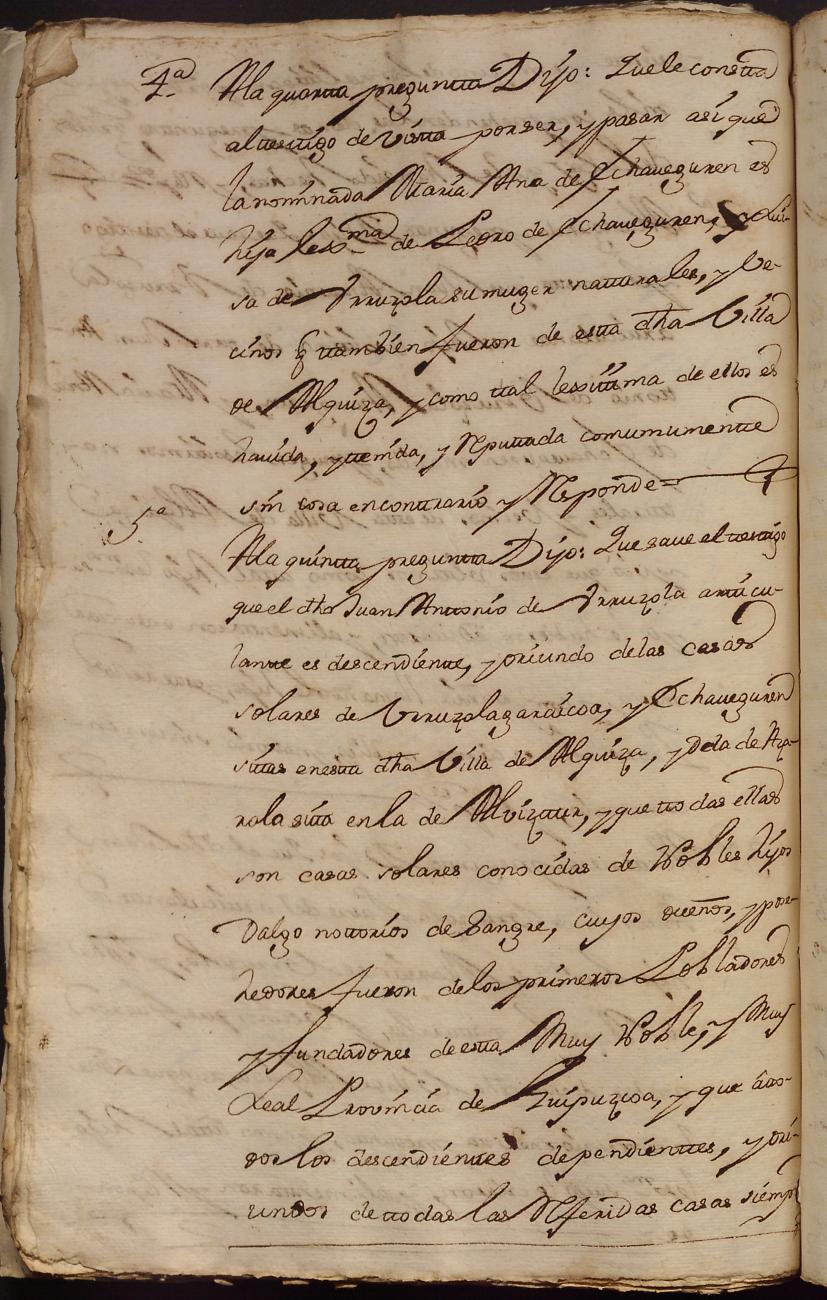 4.a A la quartta preguntta Dijo: Que le constta
al testtigo de vistta por ser, y pasar asi que
la nominada Maria Ana de Echaveguren es
hija lexma de Pedro de Echaveguren, y Lui-
sa de Urruzola su muger natturales, y Ve-
cinos q ttambien fueron de estta dha Villa
de Alquiza, y como ttal lexittima de ellos es
havida, y ttenida, y Reputtada comunmentte
sin cosa en conttrario y Responde=
5.a A la quintta preguntta Dijo: Que save el testtigo
que el dho Juan Anttonio de Urruzola artticu-
lantte es descendientte, y oriundo de las casas
solares de Urruzolagaraicoa, y Echaveguren
sittas en estta dha Villa de Alquiza, y de la de Aza-
rola sitta en la de Alviztur, y que ttodas ellas
son casas solares conocidas de Nobles hijos
Dalgo nottorios de Sangre, cuyos dueños, y pose-
hedores fueron de los primeros Pobladores
y fundadores de estta Muy Noble, y Muy
Leal Provincia de Guipuzcoa, y que a tto-
dos los descendienttes dependienttes, y ori-
undos de ttodas las Referidas casas siemp